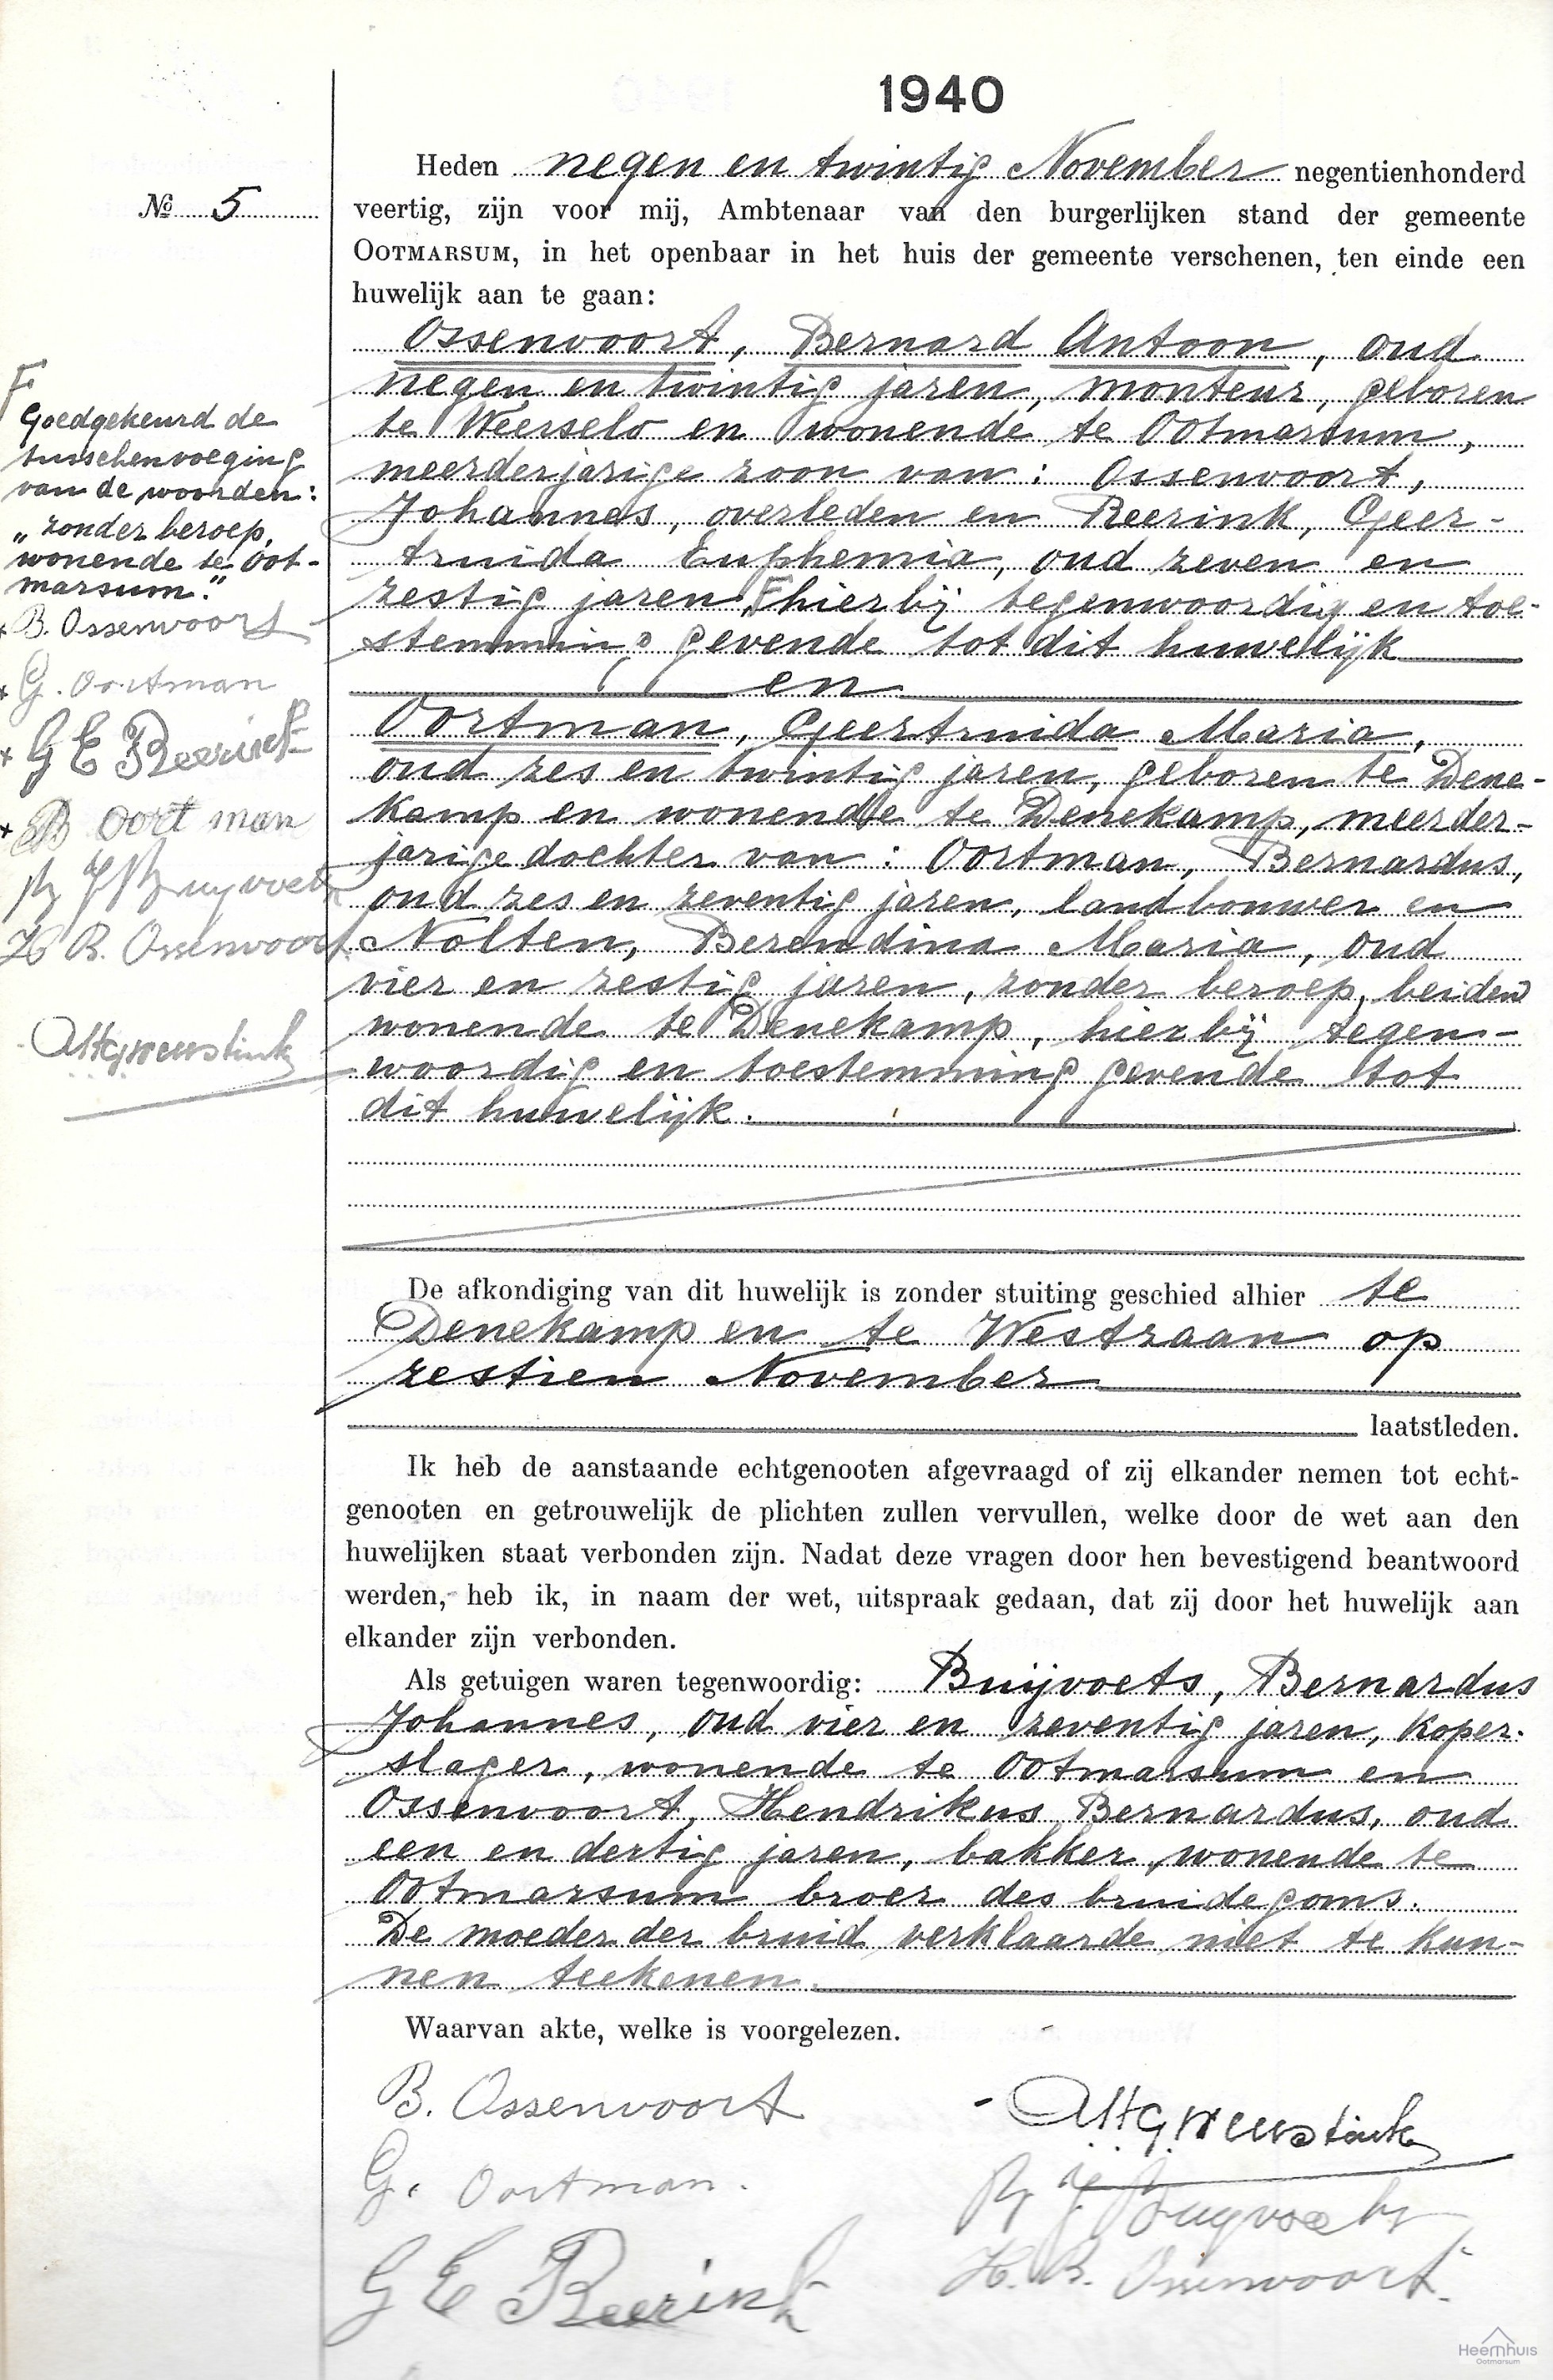 1940
№ 5
Heden negen en twintig November negentienhonderd
veertig, zijn voor mij, Ambtenaar van den burgerlijken stand der gemeente
OOTMARSUM, in het openbaar in het huis der gemeente verschenen, ten einde een
huwelijk aan te gaan:
Ossenvoort, Bernard Antoon, oud
negen en twintig jaren, monteur, geboren
te Weerselo en wonende te Ootmarsum,
meerderjarige zoon van: Ossenvoort,
Johannes, overleden en Reerink, Geer-
truida Euphemia, oud zeven en
zestig jaren, F hierbij tegenwoordig en toe-
stemming gevende tot dit huwelijk
en
Oortman, Geertruida Maria,
oud zes en twintig jaren, geboren te Dene-
kamp en wonende te Denekamp, meerder-
jarige dochter van: Oortman, Bernardus,
oud zes en zeventig jaren, landbouwer en
Nolten, Berendina Maria, oud
vier en zestig jaren, zonder beroep, beiden
wonende te Denekamp, hierbij tegen-
woordig en toestemming gevende tot
dit huwelijk.
F
Goedgekeurd de
tusschenvoeging
van de woorden:
„zonder beroep,
wonende te Oot-
marsum."
B. Ossenvoort
G. Oortman
G E Reerink
B Oortman
B J Buyvoets
H B. Ossenvoort
De afkondiging van dit huwelijk is zonder stuiting geschied alhier te
Denekamp en te Westzaan op
zestien November
laatstleden.
Ik heb de aanstaande echtgenooten afgevraagd of zij elkander nemen tot echt-
genooten en getrouwelijk de plichten zullen vervullen, welke door de wet aan den
huwelijken staat verbonden zijn. Nadat deze vragen door hen bevestigend beantwoord
werden, heb ik, in naam der wet, uitspraak gedaan, dat zij door het huwelijk aan
elkander zijn verbonden.
Als getuigen waren tegenwoordig: Buijvoets, Bernardus
Johannes, oud vier en zeventig jaren, koper-
slager, wonende te Ootmarsum en
Ossenvoort, Hendrikus Bernardus, oud
een en dertig jaren, bakker, wonende te
Ootmarsum broer des bruidegoms.
De moeder der bruid verklaarde niet te kun-
nen teekenen.
Waarvan akte, welke is voorgelezen.
B. Ossenvoort
G. Oortman.
B J Buyvoets
G E Reerink
H. B. Ossenvoort.
Heemhuis
Ootmarsum